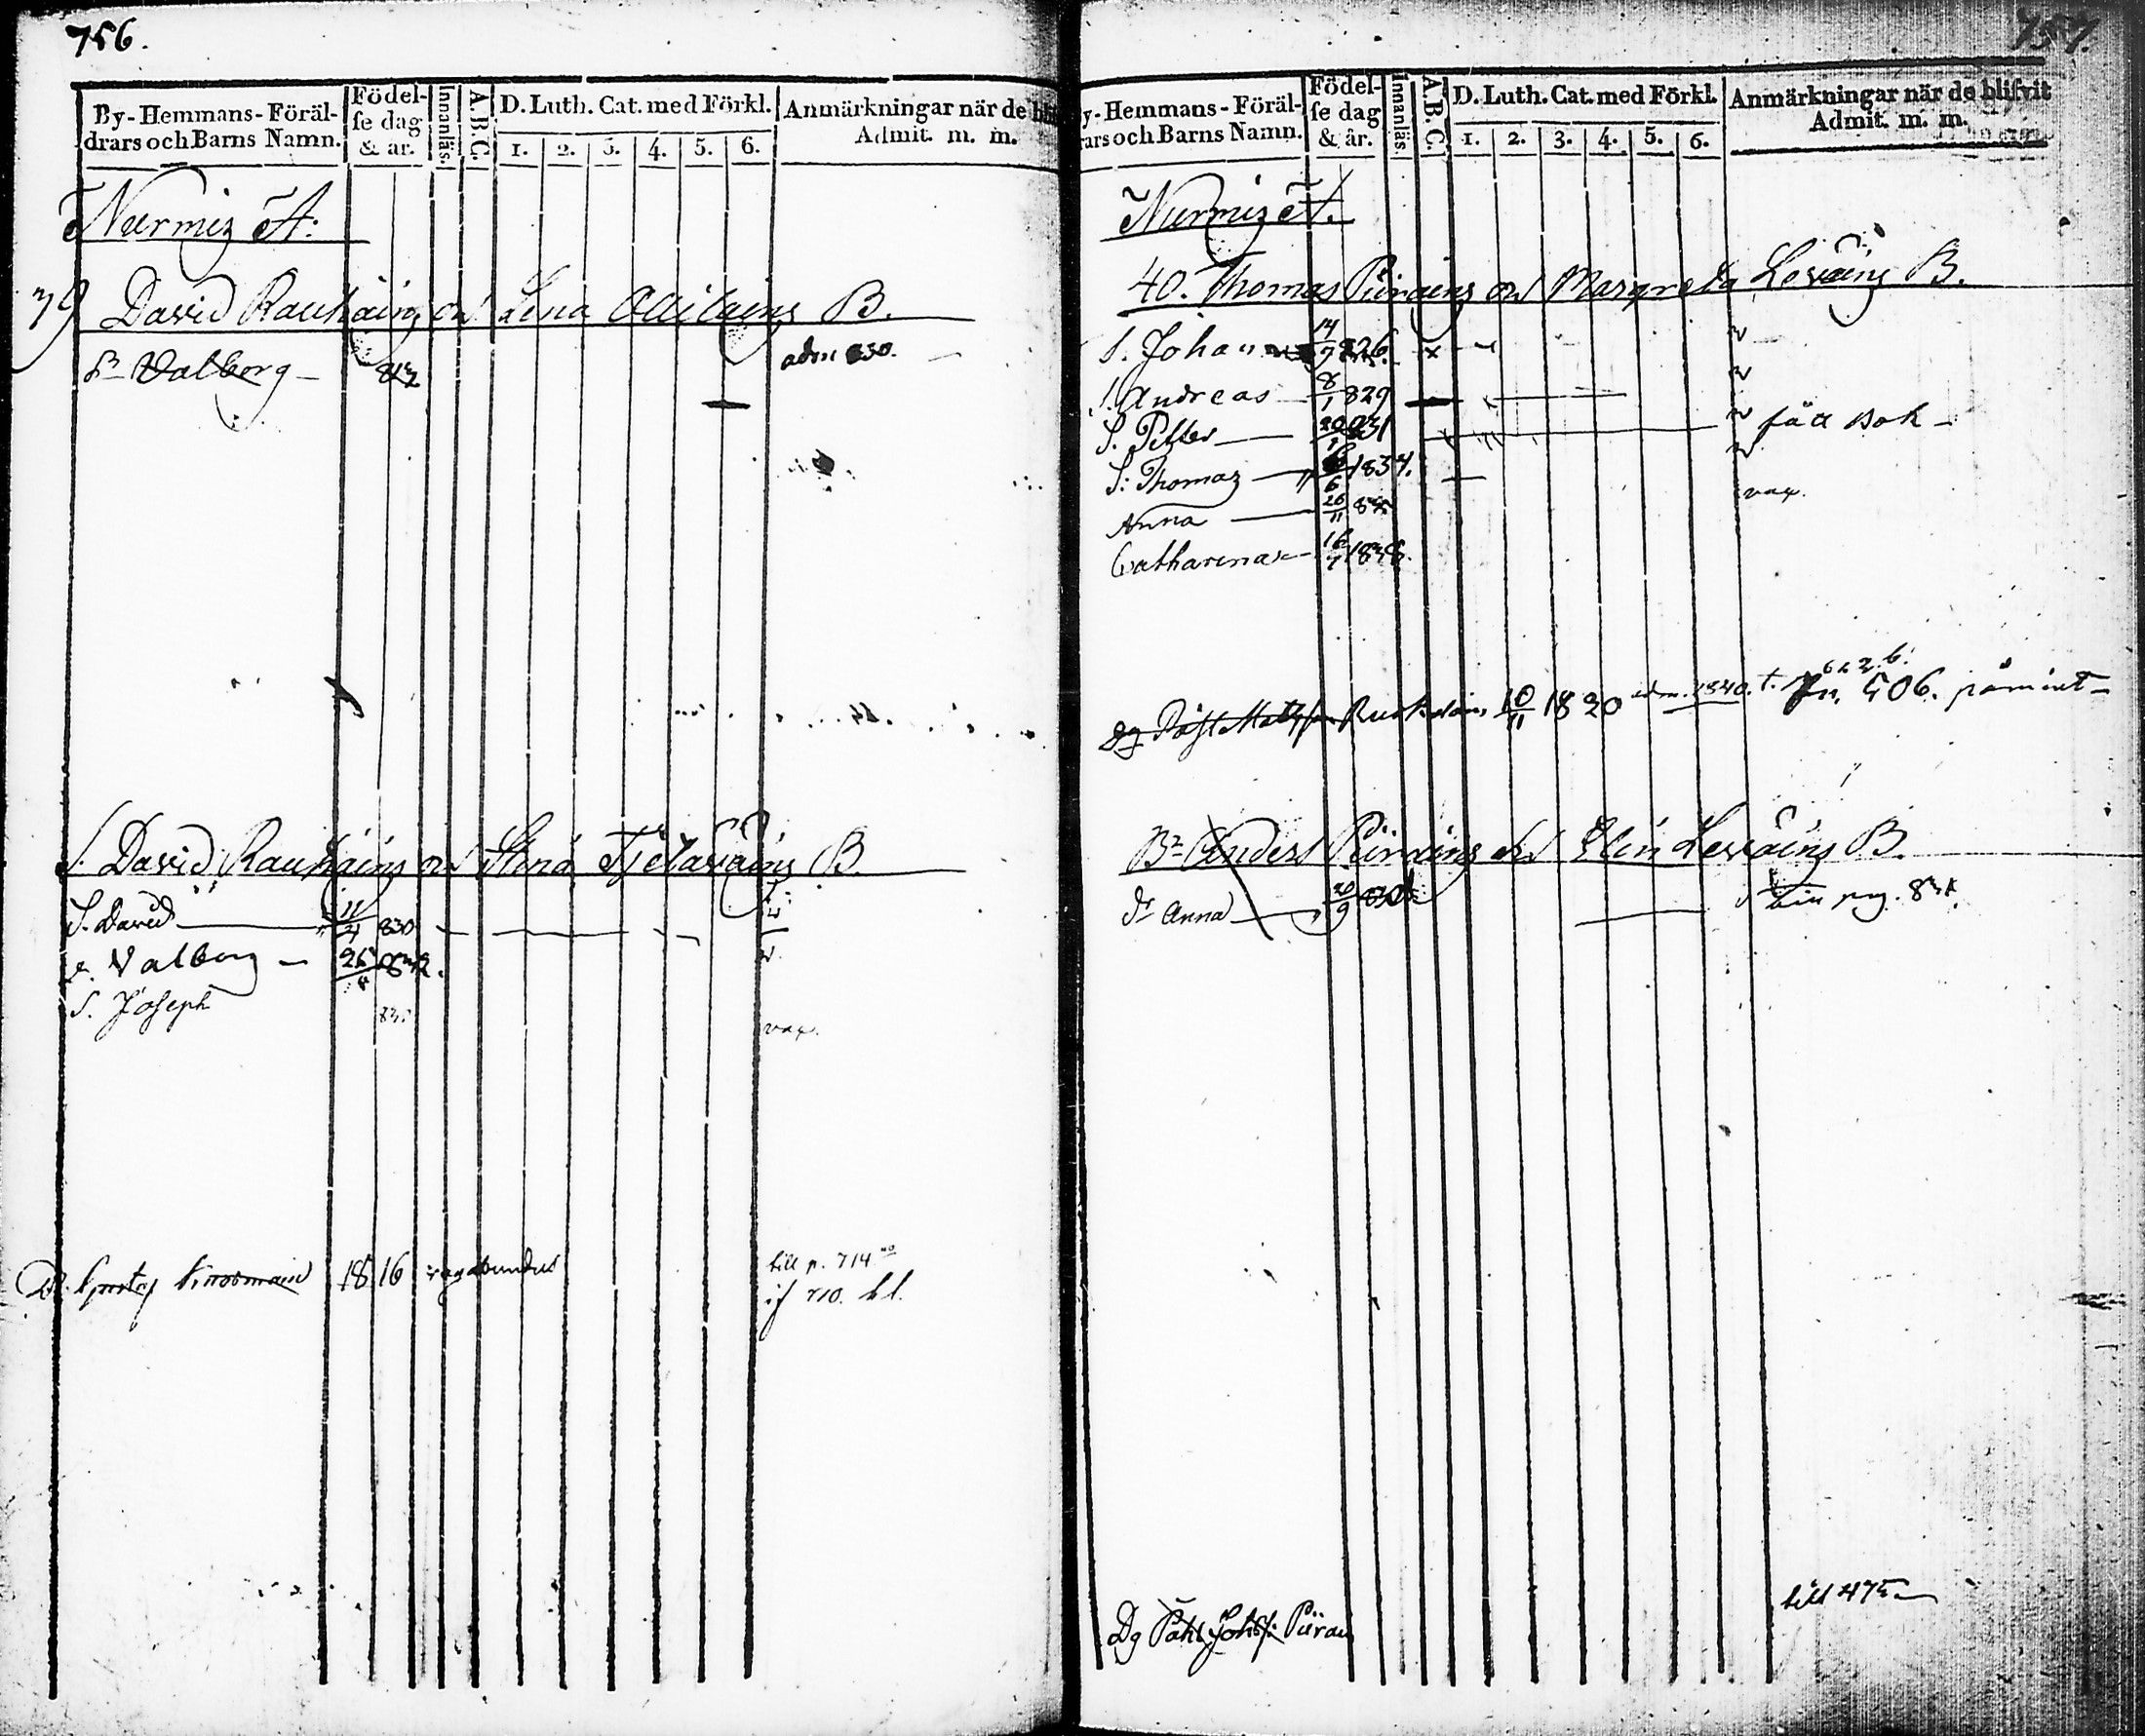 756.
By-Hemmans-Föräl-
drars och Barns Namn.
Födel-
se dag
& år.
Innanläs.
A.B.C.
D. Luth. Cat. med Förkl.
1. 2. 3. 4. 5. 6.
Anmärkningar när de bli
Admit. m. m.
Nurmiz A:
39 David Rauhains och Lena Ollikains B.
Dr Valborg — 813 adm 830.
S. David Rauhains och Stina Tjelavains B.
S. David — 11/4 830 v
d. Valborg — 26 832. v
S. Joseph vax.
Dr. Gustaf 1816 vagabundus till p. 714
710. bl.
757.
y-Hemmans-Föräl-
rars och Barns Namn.
Födel-
se dag
& år.
Innanläs.
A.B.C.
D. Luth. Cat. med Förkl.
1. 2. 3. 4. 5. 6.
Anmärkningar när de blifvit
Admit. m. m.
Nurmiz A.
40. Thomas Piirains och Margreta Levains B.
S. Johannes 14/9 826. x v
S. Andreas — 8/1 829 v
S. Petter — 831 v fått bok —
S: Thomas — 1834. v
Anna — 26/11 vax.
Catharina — 16/7 1838.
dg Påhl Matsson 10/11 1820 adm. 1840. t. 622 b.
Pn. 506. påmint —
Br Anders Piirains och Elin Levains B.
dr Anna — 20/9 830
Dg Påhl Johs: Piirain till 475 —